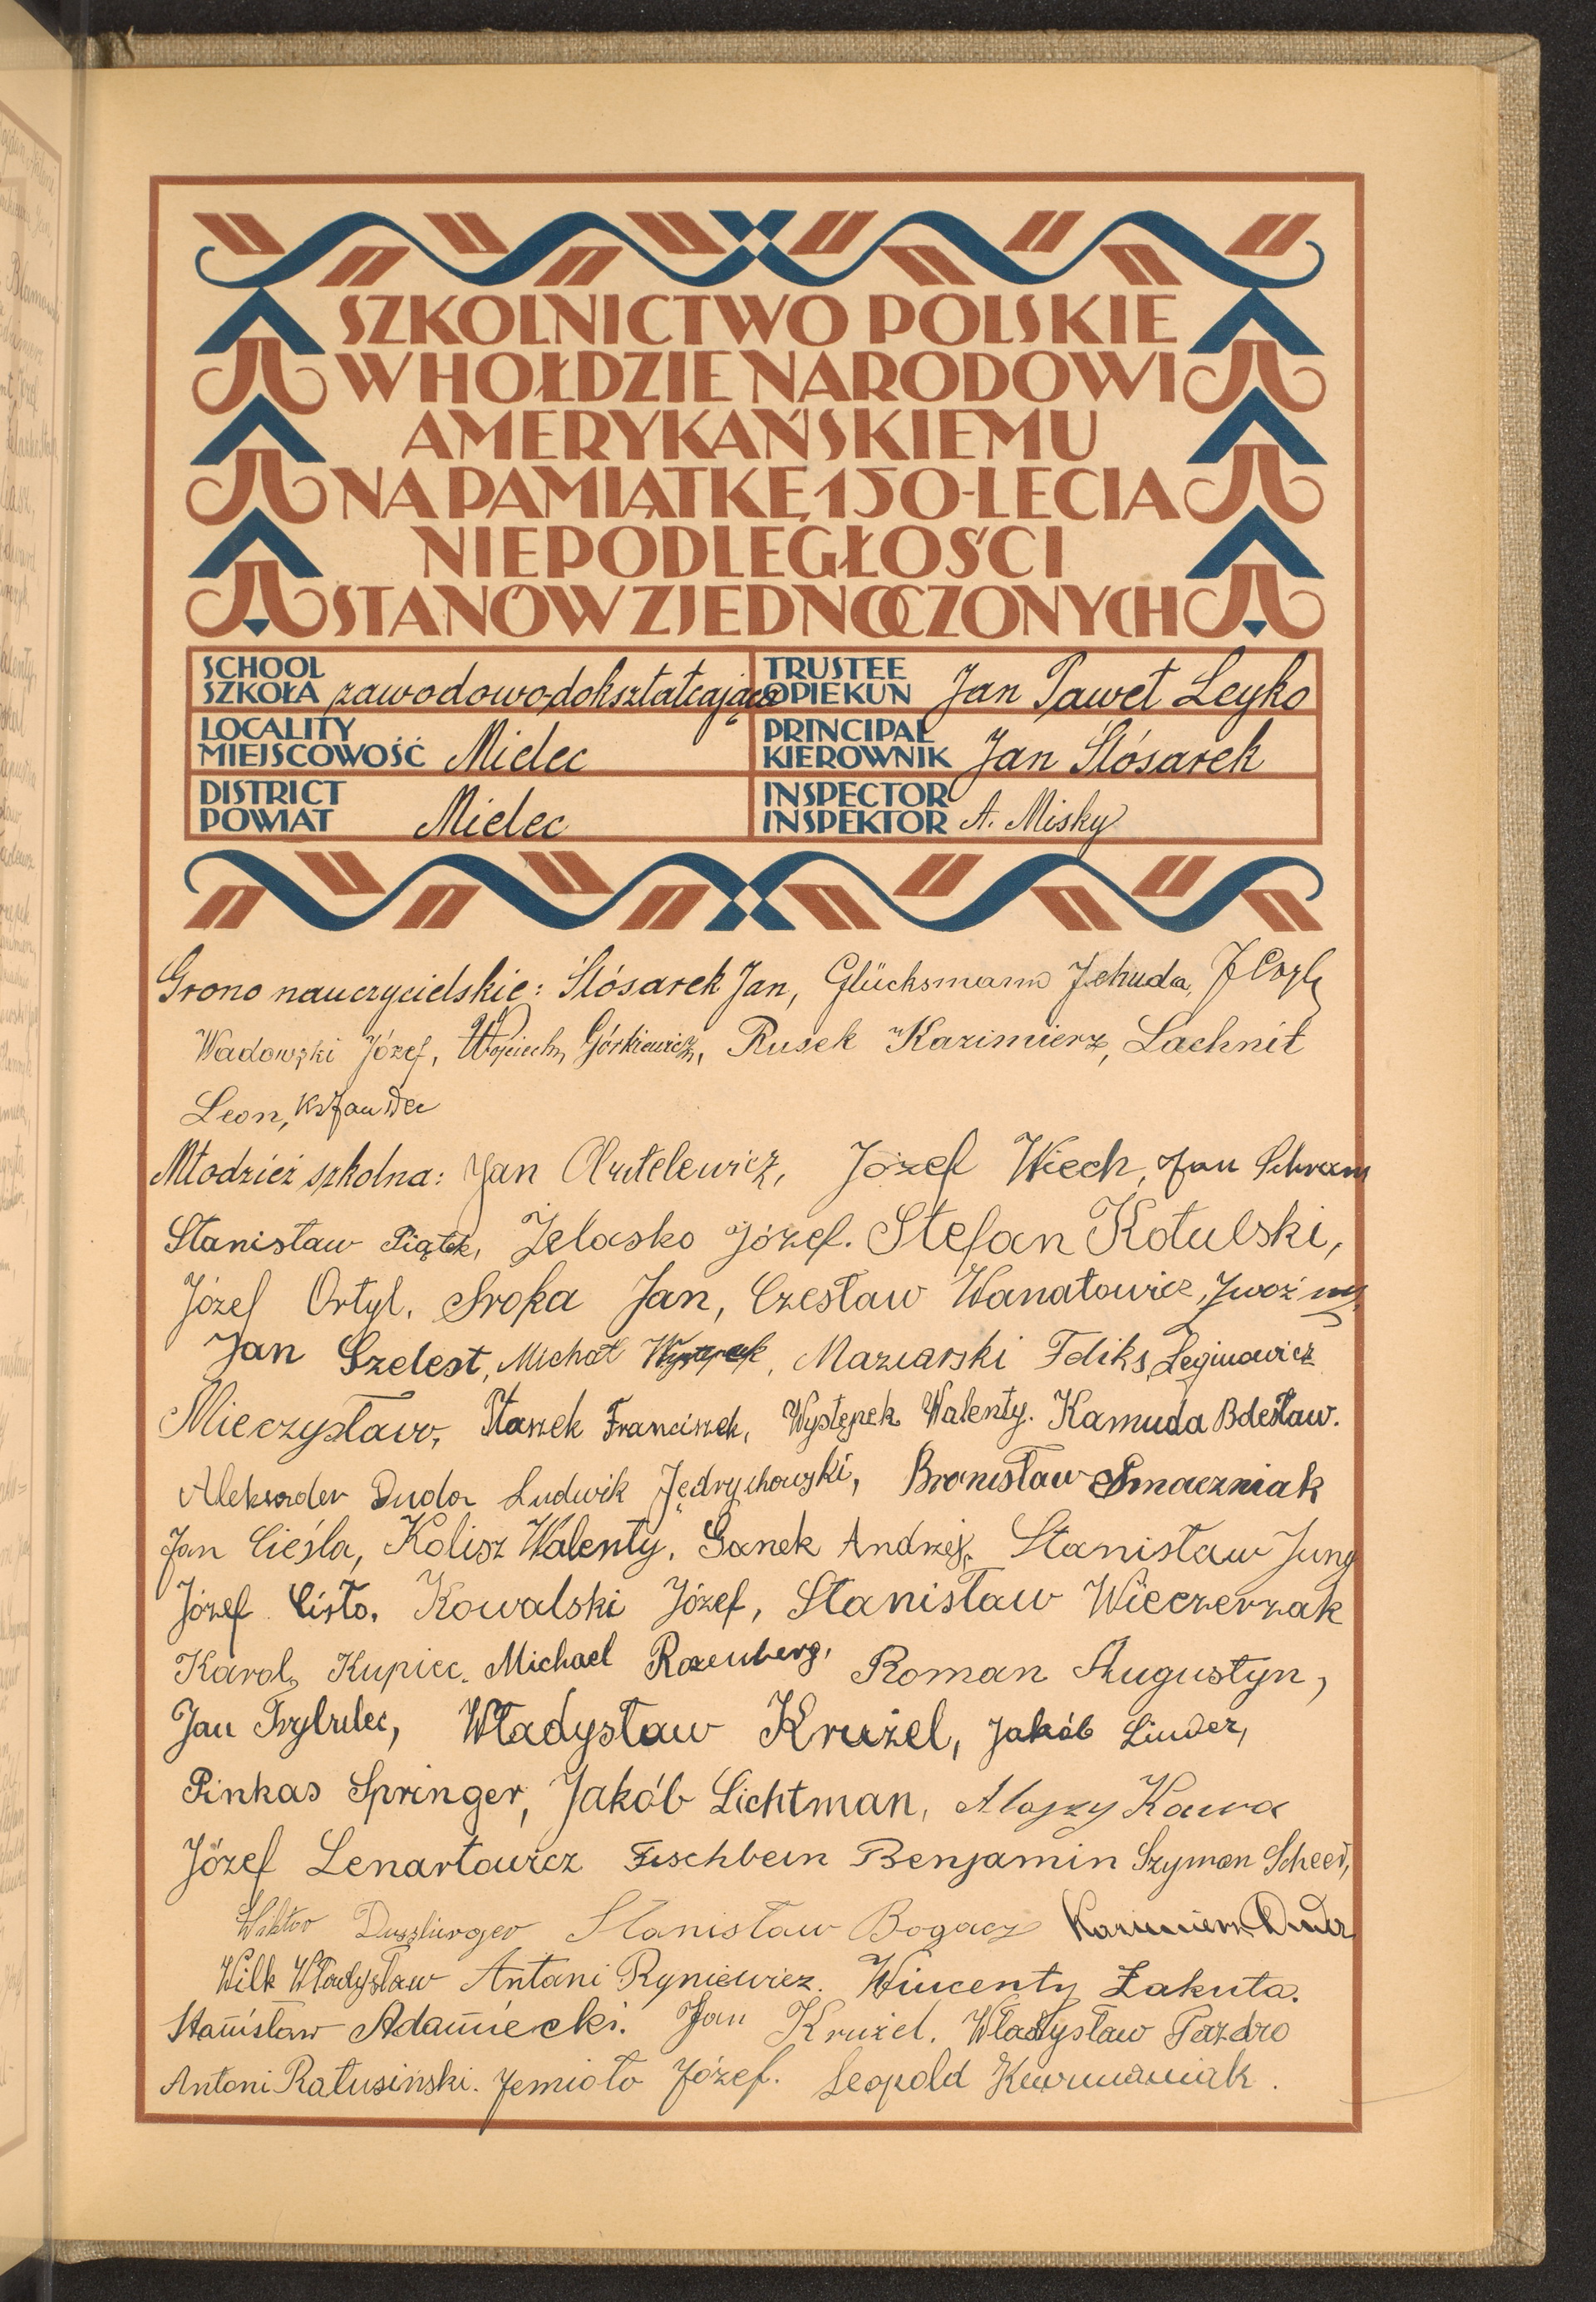 SZKOLNICTWO POLSKIE
W HOŁDZIE NARODOWI
AMERYKAŃSKIEMU
NA PAMIĄTKĘ 150-LECIA
NIEPODLEGŁOŚCI
STANÓW ZJEDNOCZONYCH
SCHOOL
SZKOŁA zawodowo dokształcająca
TRUSTEE
OPIEKUN Jan Paweł Leyko
LOCALITY
MIEJSCOWOŚĆ Mielec
PRINCIPAL
KIEROWNIK Jan Ślósarek
DISTRICT
POWIAT Mielec
INSPECTOR
INSPEKTOR A. Misky
Grono nauczycielskie: Ślósarek Jan, Glücksmann Jehuda,
Wadowski Józef, Wojciech Górkiewicz, Rusek Kazimierz, Lachnit
Leon,
Młodzież szkolna: Jan Józef Wiech, Jan Schram
Stanisław Piątek, Żelasko Józef. Stefan Kotulski,
Józef Ortyl. Sroka Jan, Czesław Wanatowicz,
Jan Szelest, Michał Maziarski Feliks, Leginowicz
Mieczysław, Staszek Franciszek, Występek Walenty. Kamuda Bolesław.
Aleksander Duda Ludwik Jędrychowski, Bronisław Smaczniak
Jan Cieśla, Kolisz Walenty, Ganek Andrzej, Stanisław Jung
Józef Cisło, Kowalski Józef, Stanisław Wieczerzak
Karol Kupiec. Michael Rozenberg, Roman Augustyn,
Jan Władysław Krużel, Jakób Linder,
Pinkas Springer, Jakób Lichtman, Alojzy Kawa
Józef Lenartowicz Fischbein Benjamin Szymon Scheer,
Wiktor Stanisław Bogacz Kazimierz Duda
Wilk Władysław Antoni Ryniewicz. Wincenty Żakuta.
Stanisław Adamiecki. Jan Krużel. Władysław Pazdro
Antoni Ratusiński. Jemioło Józef. Leopold